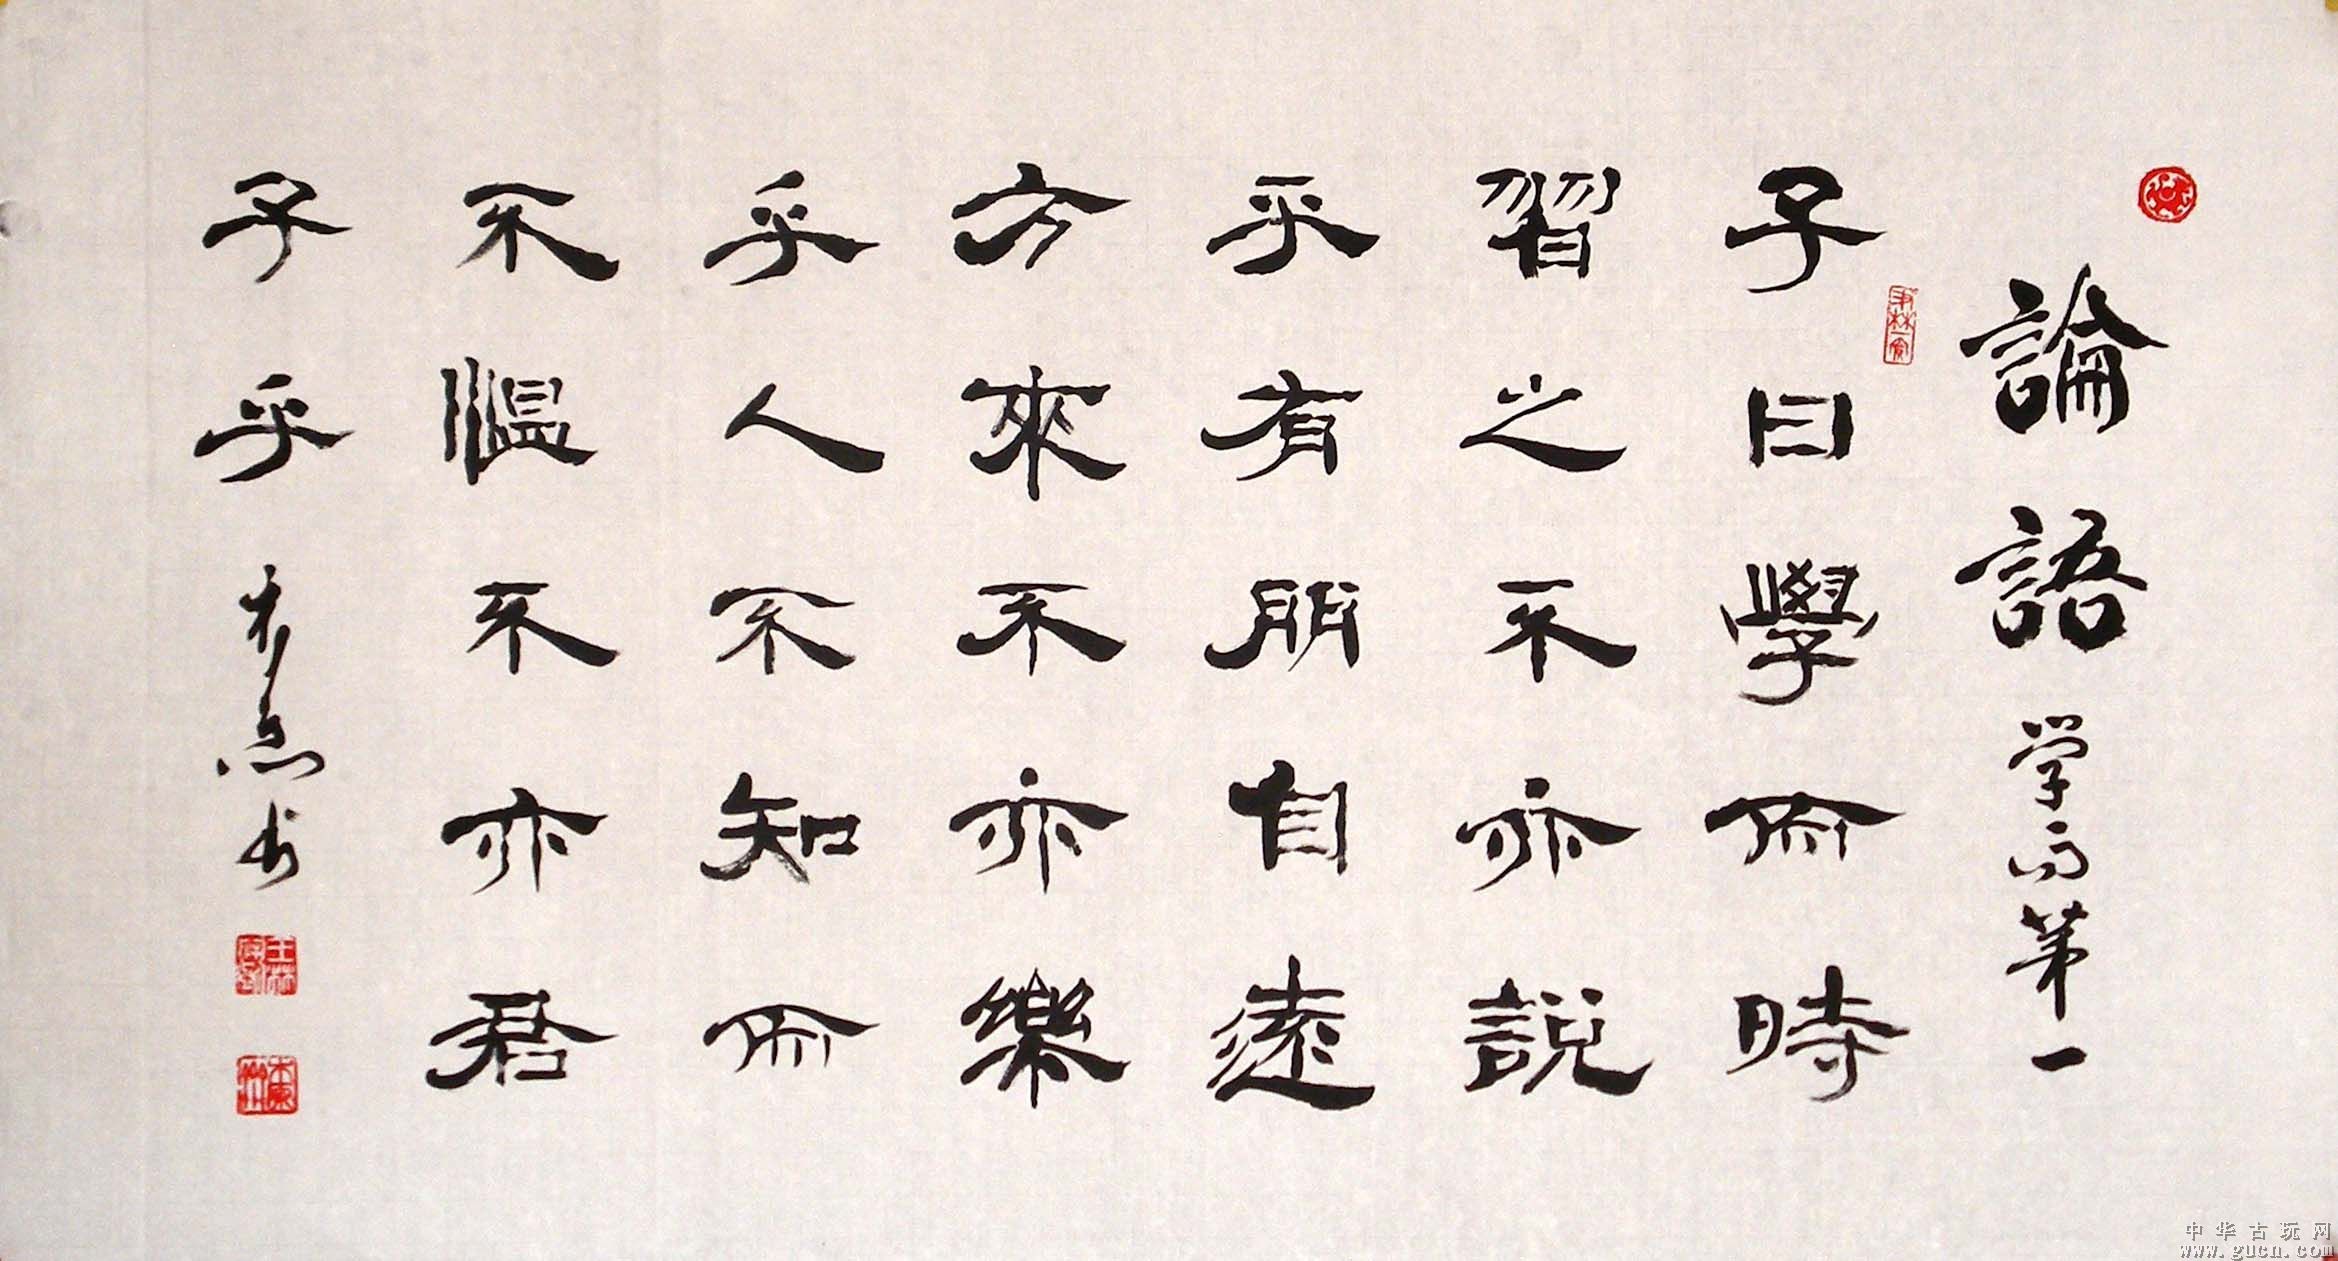 論語 学而第一
子曰學而時
習之不亦說
乎有朋自遠
方來不亦樂
乎人不知而
不愠不亦君
子乎
中华古玩网
www.gucn.com